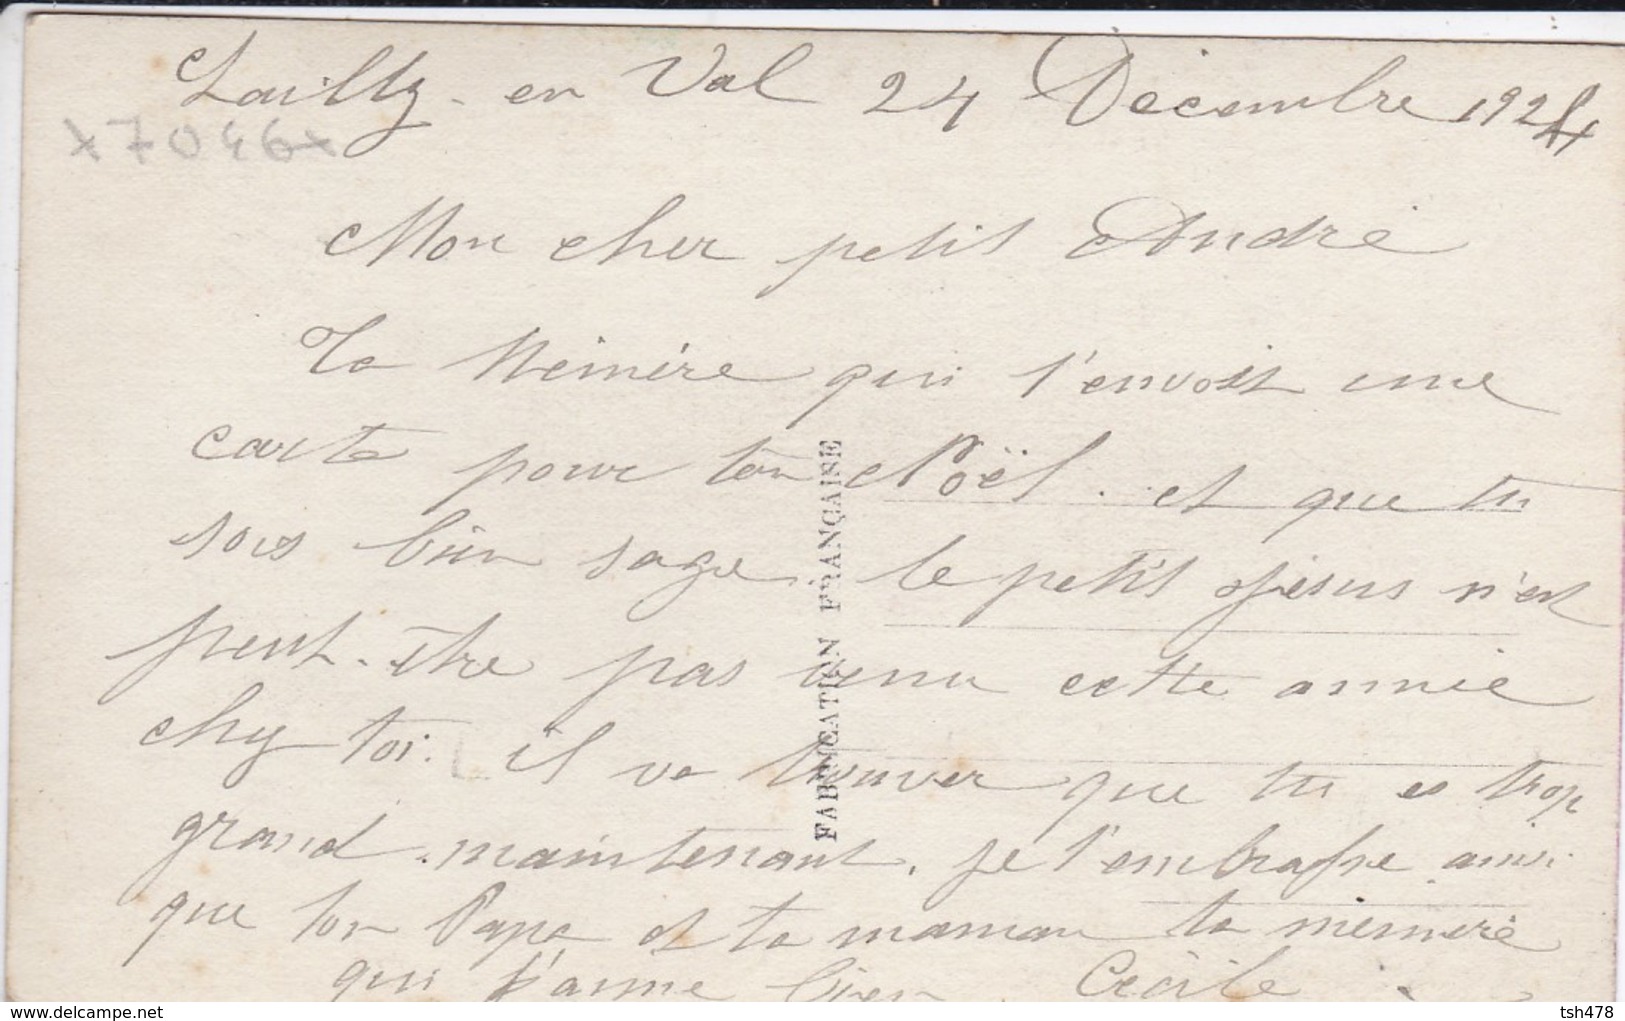 Lailly-en Val 24 Décembre 1924
x7046x
Mon cher petit André
Ta Mémère qui t'envoit une
carte pour ton Noël. et que tu
sois bien sage. le petit Jésus n'est
peut-être pas venu cette année
chez toi. il va trouver que tu es trop
grand maintenant. je t'embrasse ainsi
que ton Papa et ta maman ta mémère
qui t'aime bien. Cécile
FABRICATION FRANÇAISE
delcampe.net
tsh478